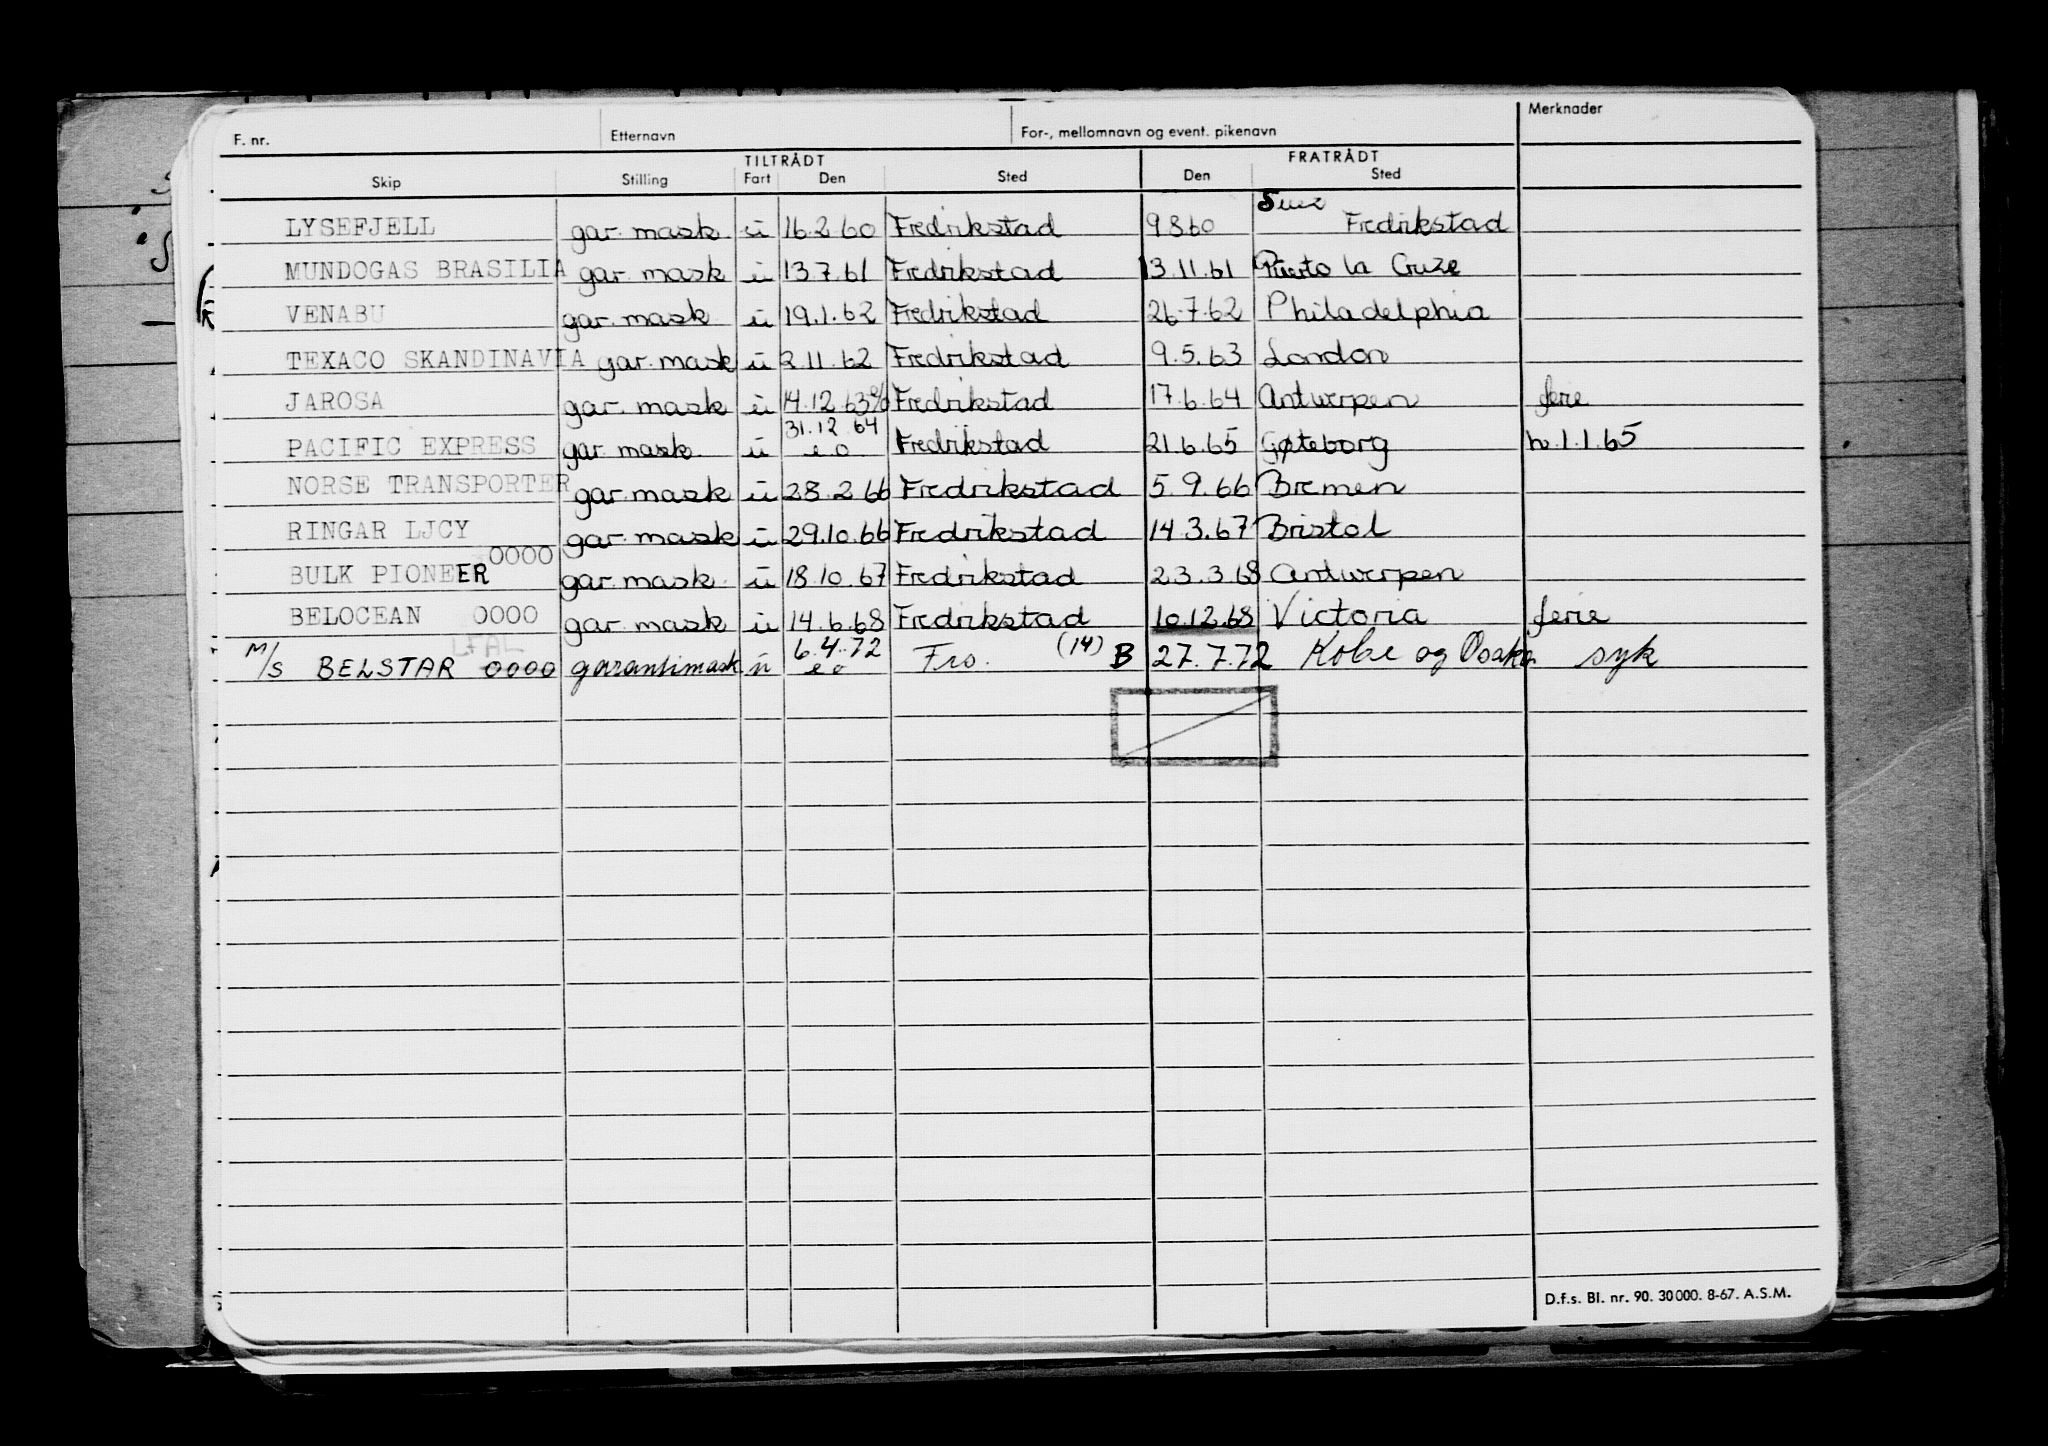 F. nr. Etternavn For-, mellomnavn og event. pikenavn Merknader
TILTRÅDT FRATRÅDT
Skip Stilling Fart Den Sted Den Sted
LYSEFJELL gar. mask. u 16.2.60 Fredrikstad 9860 Suez Fredrikstad
MUNDOGAS BRASILIA gar. mask u 13.7.61 Fredrikstad 13.11.61 Puerto la Cruze
VENABU gar. mask u 19.1.62 Fredrikstad 26.7.62 Philadelphia
TEXACO SKANDINAVIA gar. mask u 2.11.62 Fredrikstad 9.5.63 London
JAROSA gar. mask u 14.12.63 Fredrikstad 17.6.64 Antwerpen ferie
PACIFIC EXPRESS gar mask u 31.12 64 e o Fredrikstad 21.6.65 Gøteborg h. 1.1.65
NORSE TRANSPORTER gar. mask u 28.2 66 Fredrikstad 5.9.66 Bremen
RINGAR LJCY gar. mask u 29.10.66 Fredrikstad 14.3.67 Bristol
BULK PIONEER 0000 gar. mask u 18.10.67 Fredrikstad 23.3.68 Antwerpen
BELOCEAN 0000 gar. mask u 14.6.68 Fredrikstad 10.12.68 Victoria ferie
M/S BELSTAR LFAL 0000 garantimask u 6.4.72 e o Fro. (14) B 27.7.72 Kobe og Osaka syk
D.f.s. Bl. nr. 90. 30000. 8-67. A.S.M.